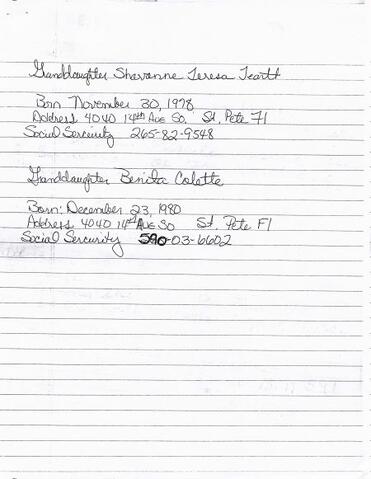 Granddaughter Shavanne Teresa Teartt
Born November 30, 1978
Address 4040 14th Ave So. St. Pete Fl
Social Sercuirty 265-82-9548
Granddaughter Benita Colette
Born: December 23, 1980
Address 4040 14th Ave So St. Pete Fl
Social Sercurity 590-03-6602